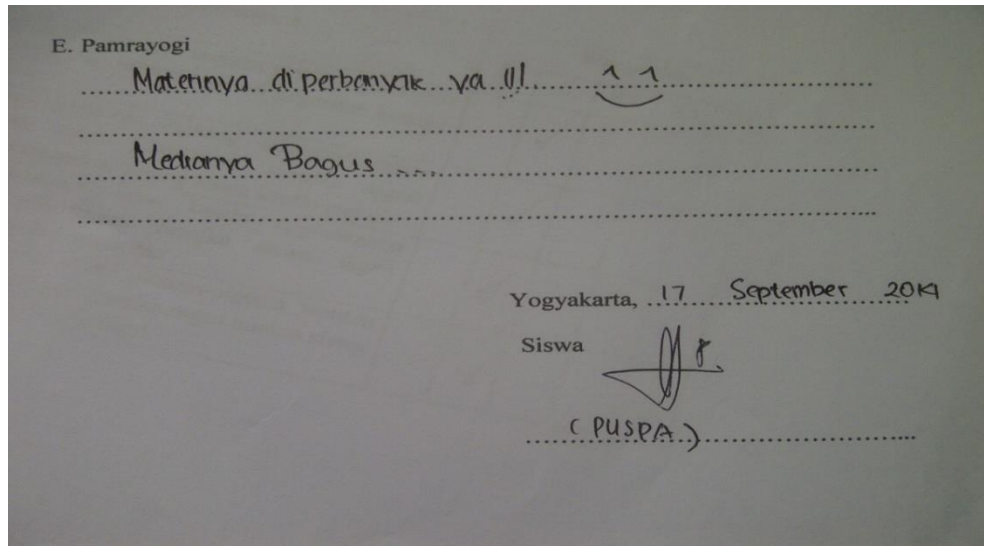 E. Pamrayogi
Materinya diperbanyak ya !!!
Medianya Bagus ....
Yogyakarta, 17 September 2014
Siswa
(PUSPA)